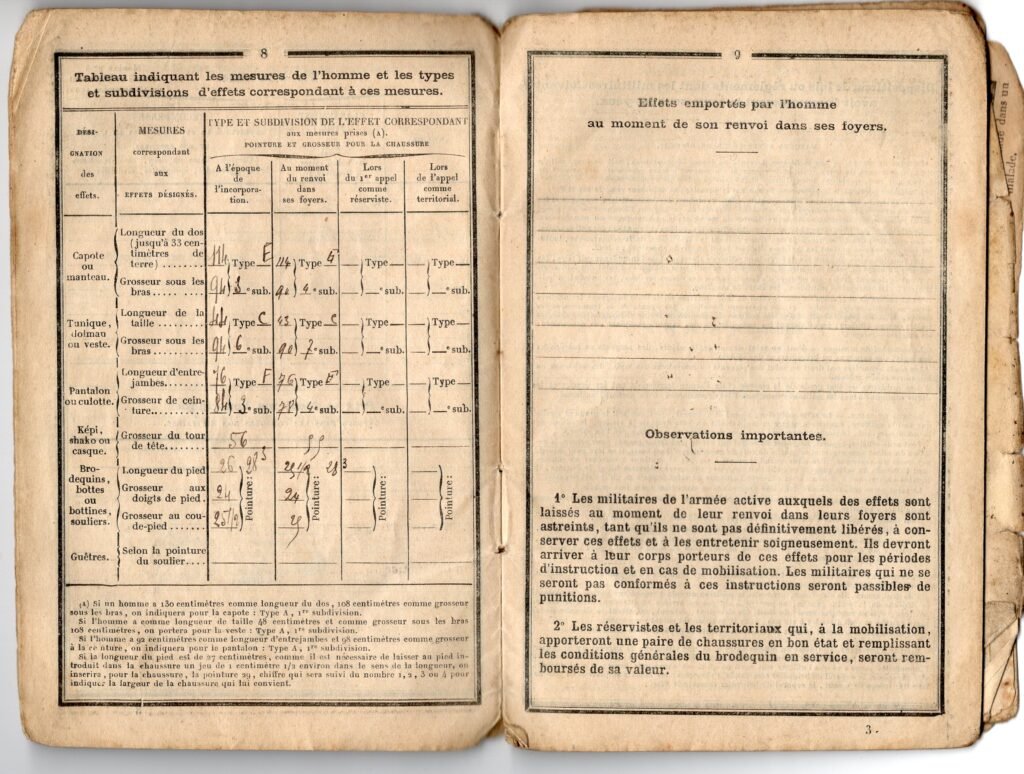 8
Tableau indiquant les mesures de l'homme et les types
et subdivisions d'effets correspondant à ces mesures.
DÉSI-
GNATION
des
effets.
MESURES
correspondant
aux
EFFETS DÉSIGNÉS.
TYPE ET SUBDIVISION DE L'EFFET CORRESPONDANT
aux mesures prises (A).
POINTURE ET GROSSEUR POUR LA CHAUSSURE
A l'époque
de
l'incorpora-
tion.
Au moment
du renvoi
dans
ses foyers.
Lors
du 1er appel
comme
réserviste.
Lors
de l'appel
comme
territorial.
Capote
ou
manteau.
Longueur du dos
(jusqu'à 33 cen-
timètres de
terre)........
114 Type E 114 Type G Type Type
Grosseur sous les
bras...........
94 3e sub. 90 4e sub. e sub. e sub.
Tunique,
dolman
ou veste.
Longueur de la
taille.........
44 Type C 43 Type C Type Type
Grosseur sous les
bras...........
94 6e sub. 90 7e sub. e sub. e sub.
Pantalon
ou culotte.
Longueur d'entre-
jambes........
76 Type F 76 Type E Type Type
Grosseur de cein-
ture...........
84 3e sub. 78 4e sub. e sub. e sub.
Képi,
shako ou
casque.
Grosseur du tour
de tête........
56
Bro-
dequins,
bottes
ou
bottines,
souliers.
Longueur du pied
26 28 3 25 1/2 28 3
Grosseur aux
doigts de pied.
24 24
Grosseur au cou-
de-pied........
25 1/2 25
Pointure: Pointure: Pointure: Pointure:
Guêtres.
Selon la pointure
du soulier....
(A) Si un homme a 130 centimètres comme longueur du dos, 108 centimètres comme grosseur
sous les bras, on indiquera pour la capote : Type A, 1re subdivision.
Si l'homme a comme longueur de taille 48 centimètres et comme grosseur sous les bras
108 centimètres, on portera pour la veste : Type A, 1re subdivision.
Si l'homme a 92 centimètres comme longueur d'entrejambes et 98 centimètres comme grosseur
à la ceinture, on indiquera pour le pantalon : Type A, 1re subdivision.
Si la longueur du pied est de 27 centimètres, comme il est nécessaire de laisser au pied in-
troduit dans la chaussure un jeu de 1 centimètre 1/2 environ dans le sens de la longueur, on
inscrira, pour la chaussure, la pointure 29, chiffre qui sera suivi du nombre 1, 2, 3 ou 4 pour
indiquer la largeur de la chaussure qui lui convient.
9
Effets emportés par l'homme
au moment de son renvoi dans ses foyers.
Observations importantes.
1° Les militaires de l'armée active auxquels des effets sont
laissés au moment de leur renvoi dans leurs foyers sont
astreints, tant qu'ils ne sont pas définitivement libérés, à con-
server ces effets et à les entretenir soigneusement. Ils devront
arriver à leur corps porteurs de ces effets pour les périodes
d'instruction et en cas de mobilisation. Les militaires qui ne se
seront pas conformés à ces instructions seront passibles de
punitions.
2° Les réservistes et les territoriaux qui, à la mobilisation,
apporteront une paire de chaussures en bon état et remplissant
les conditions générales du brodequin en service, seront rem-
boursés de sa valeur.
3.
dans un
malade.